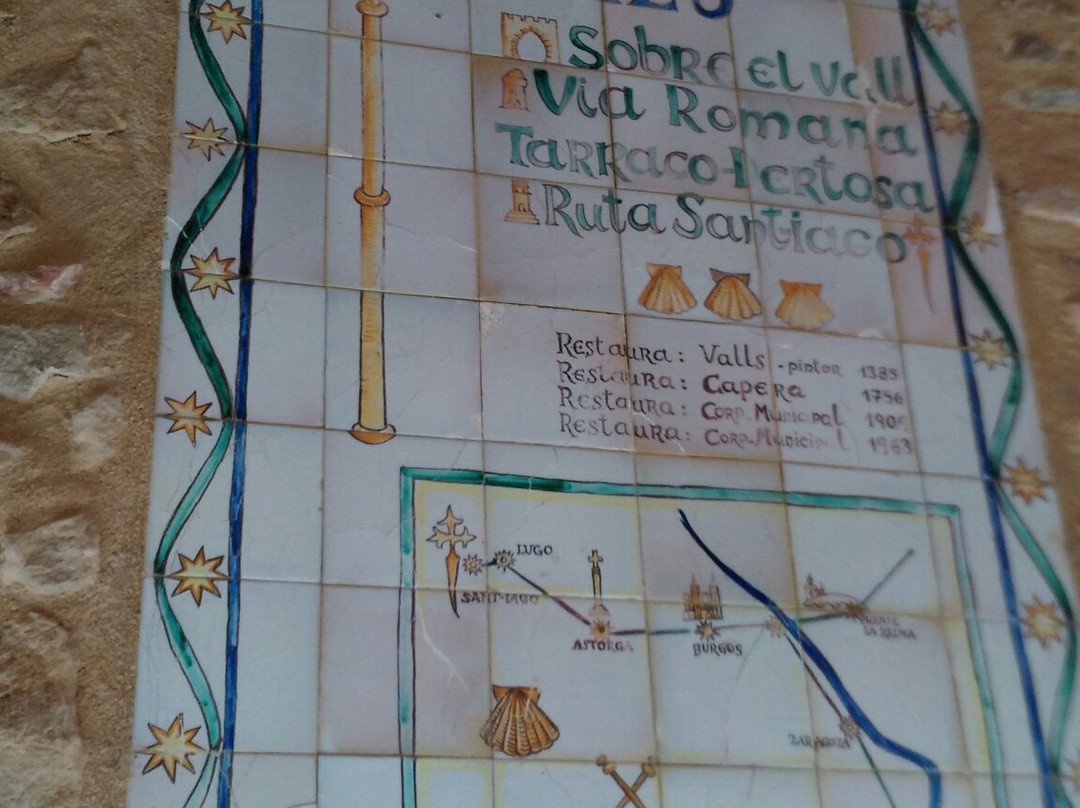 Sobre el Vall
Via Romana
Tarraco-Dertosa
Ruta Santiaco
Restaura: Valls - pintor 1385
Restaura: Capera 1756
Restaura: Corp. Municipal
Restaura: Corp. Municipal 1963
LUGO
SANT-IAGO
ASTORGA
BURGOS
PUENTE
LA REINA
ZARAGOZA